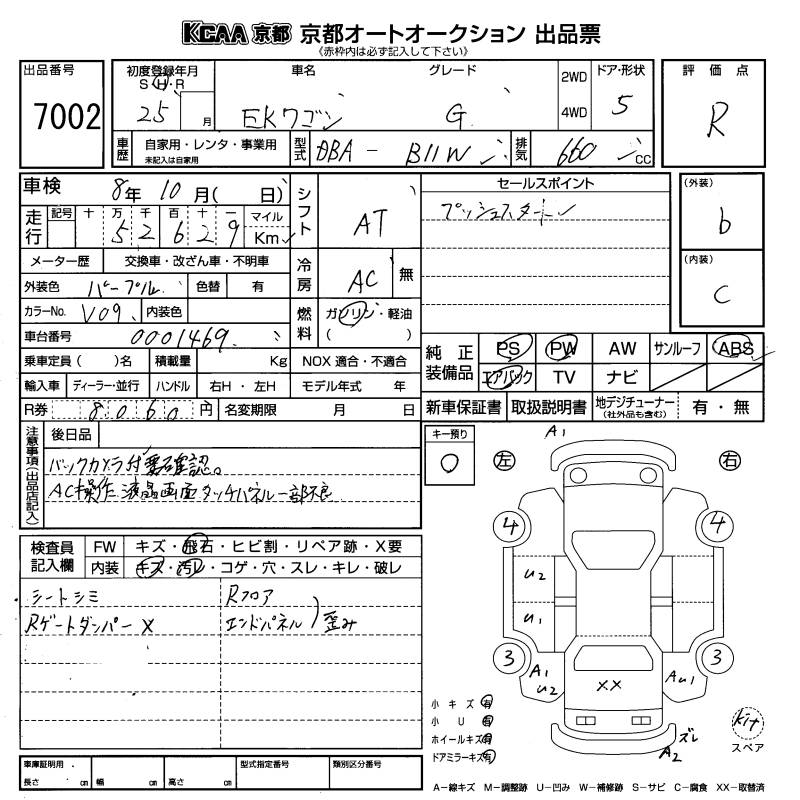 KCAA 京都 京都オートオークション 出品票
《赤枠内は必ず記入して下さい》
出品番号
7002
初度登録年月
S・H・R
25 月
車名
EKワゴン
グレード
G
2WD
4WD
ドア・形状
5
評価点
R
車歴
自家用・レンタ・事業用
未記入は自家用
型式
DBA - B11W
排気
660 CC
車検
8年 10月( 日)
走行
記号 十 万 千 百 十 一
5 2 6 2 9
マイル
Km
メーター歴 交換車・改ざん車・不明車
外装色 パープル 色替 有
カラーNo. V09 内装色
車台番号 0001469
乗車定員( )名 積載量 Kg
輸入車 ディーラー・並行 ハンドル 右H・左H
R券 8060円 名変期限 月 日
シフト
AT
冷房
AC 無
燃料
ガソリン・軽油
( )
NOX 適合・不適合
モデル年式 年
セールスポイント
プッシュスタート
(外装)
b
(内装)
C
純正装備品
PS PW AW サンルーフ ABS
エアバック TV ナビ
新車保証書 取扱説明書 地デジチューナー
(社外品も含む)
有・無
注意事項(出品店記入)
後日品
バックカメラ付 要確認。
AC操作 液晶画面タッチパネル一部不良
キー預り
○
検査員記入欄
FW キズ・飛石・ヒビ割・リペア跡・X要
内装 キズ・汚レ・コゲ・穴・スレ・キレ・破レ
シートシミ
Rゲートダンパー X
Rフロア
エンドパネル
歪み
A1
左
右
4
4
U2
U1
3
3
A1
U2
XX
AU1
ズレ
A2
小キズ 有
小U 有
ホイールキズ 有
ドアミラーキズ 有
kit
スペア
車庫証明用
長さ cm 幅 cm 高さ cm
型式指定番号
類別区分番号
A-線キズ M-調整跡 U-凹み W-補修跡 S-サビ C-腐食 XX-取替済